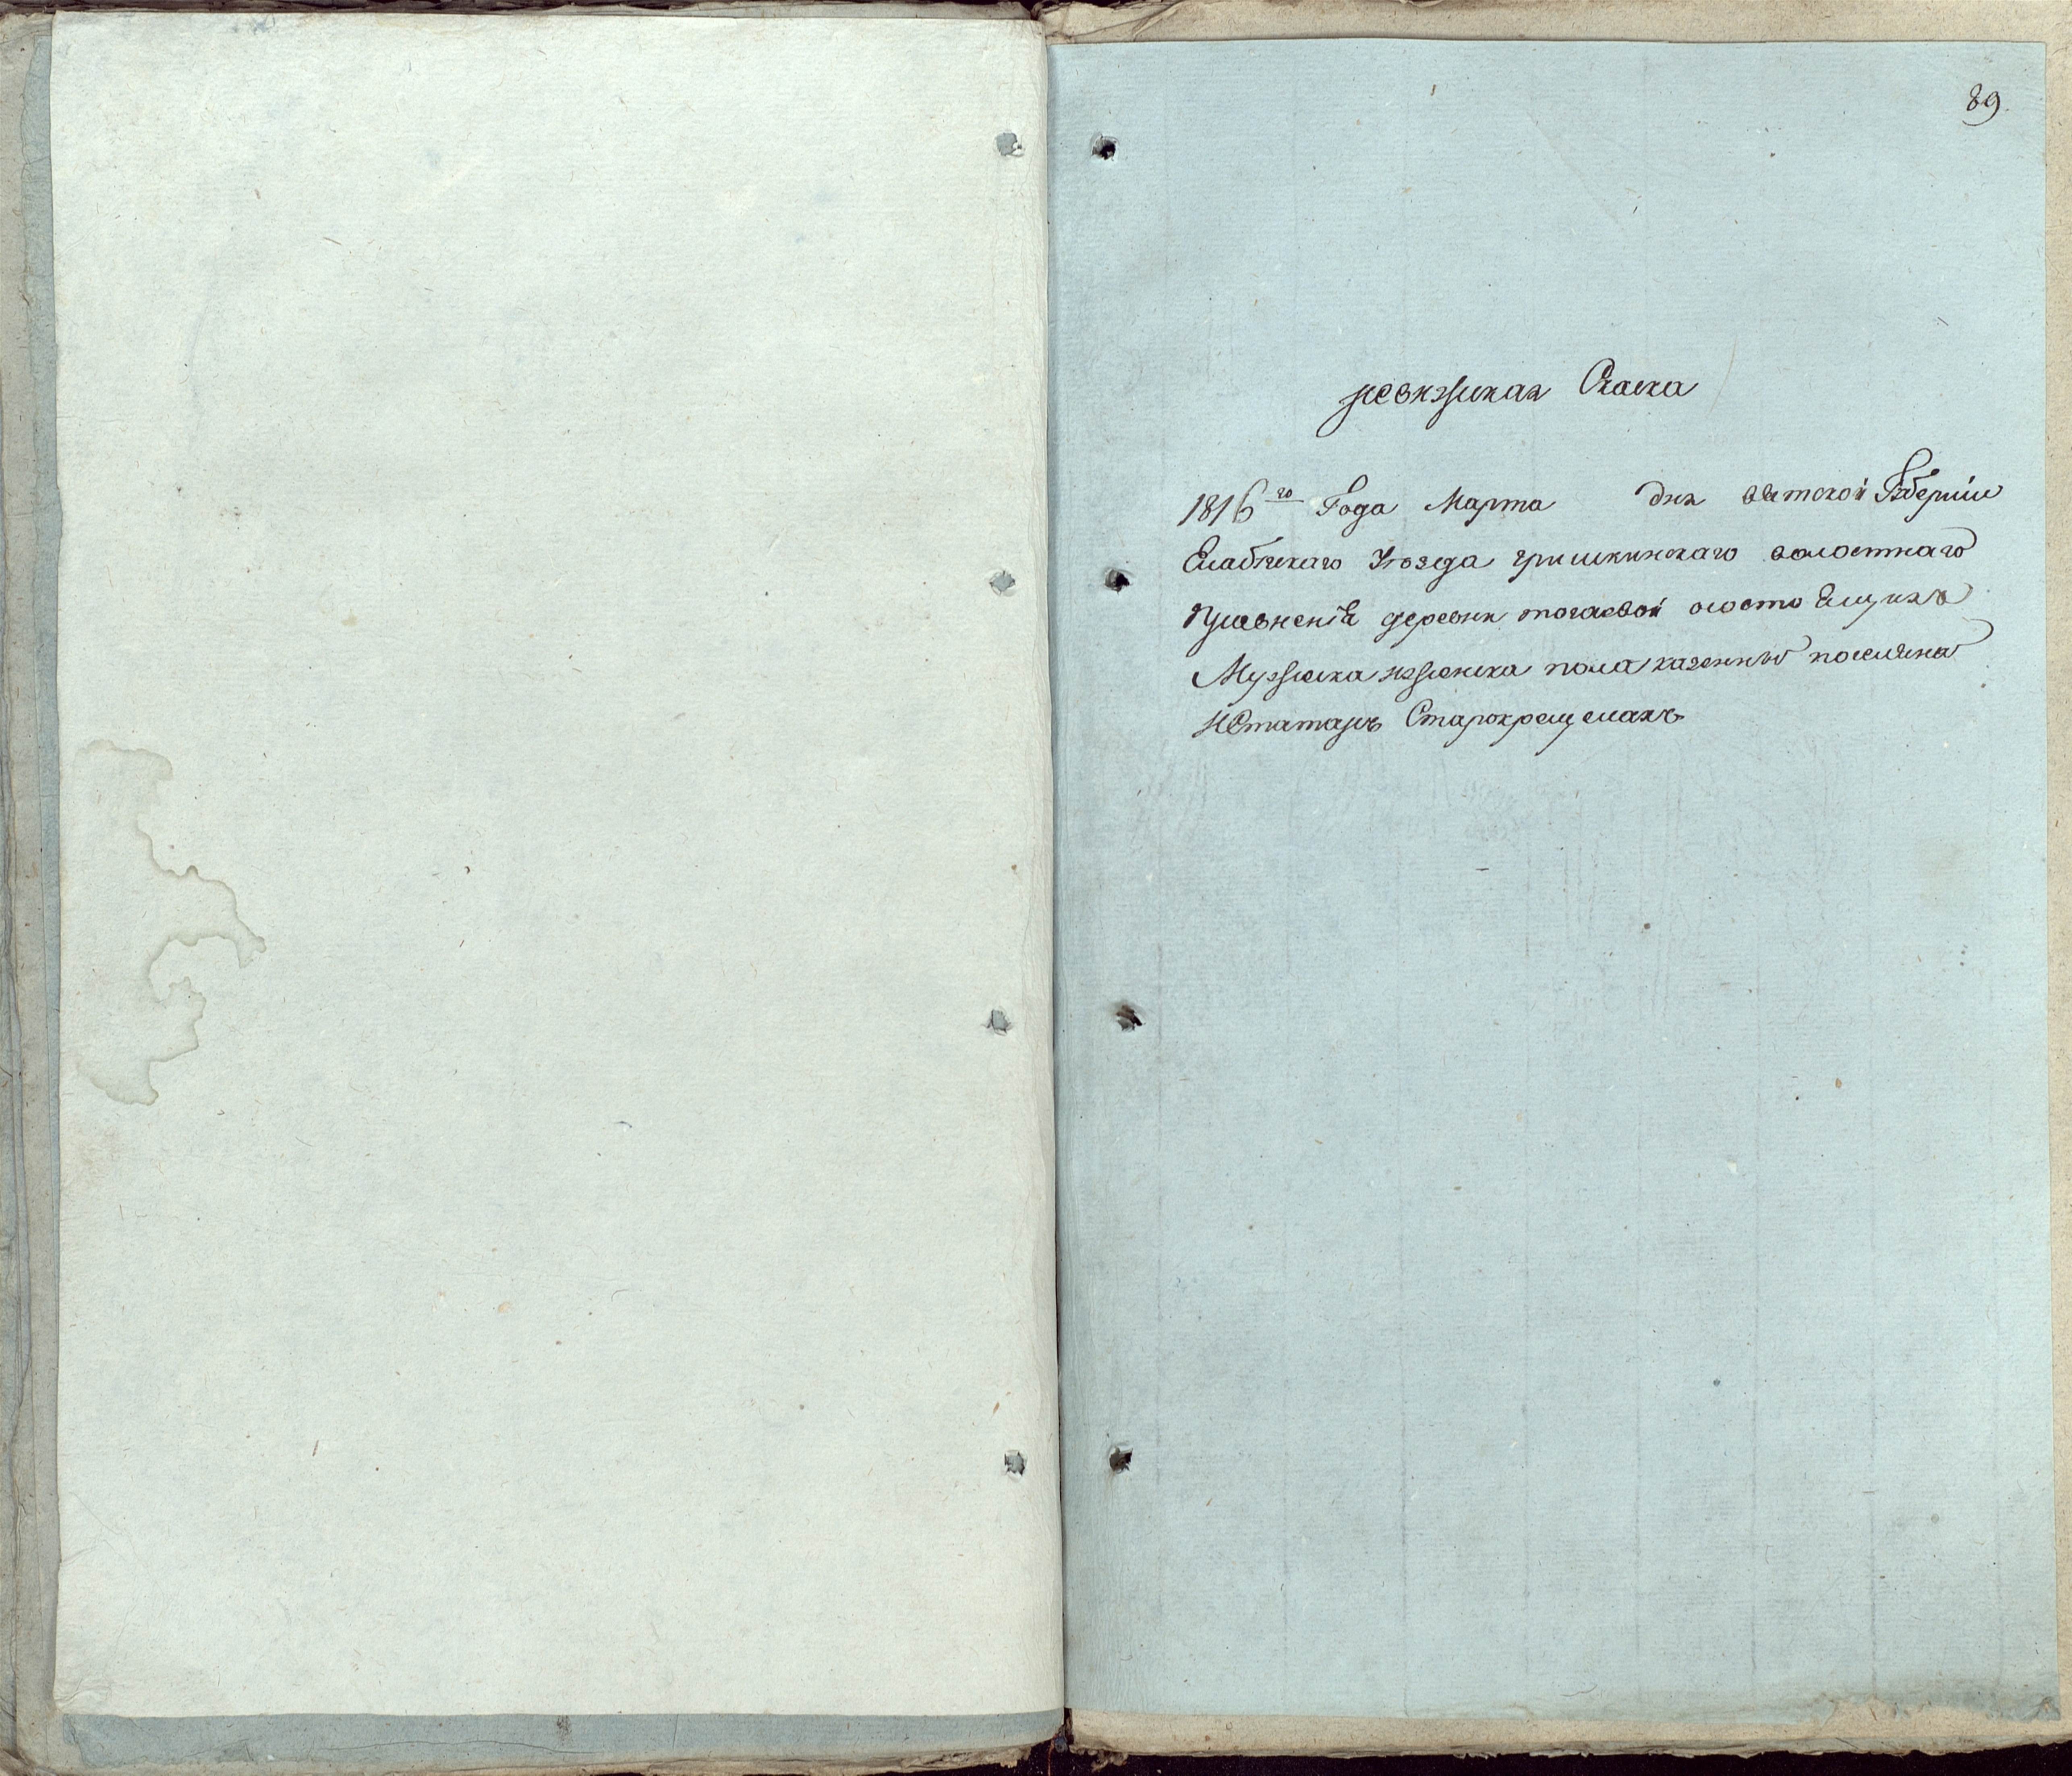 89.
ревизская Скаска
1816го Года Марта дня вятской Губерніи
Елабужскаго уезда гришкинскаго волостнаго
Правленія деревни тогаевой о состоящихъ
Мужеска изженска пола казенныхъ поселяна
изтатаръ Старокрещеныхъ